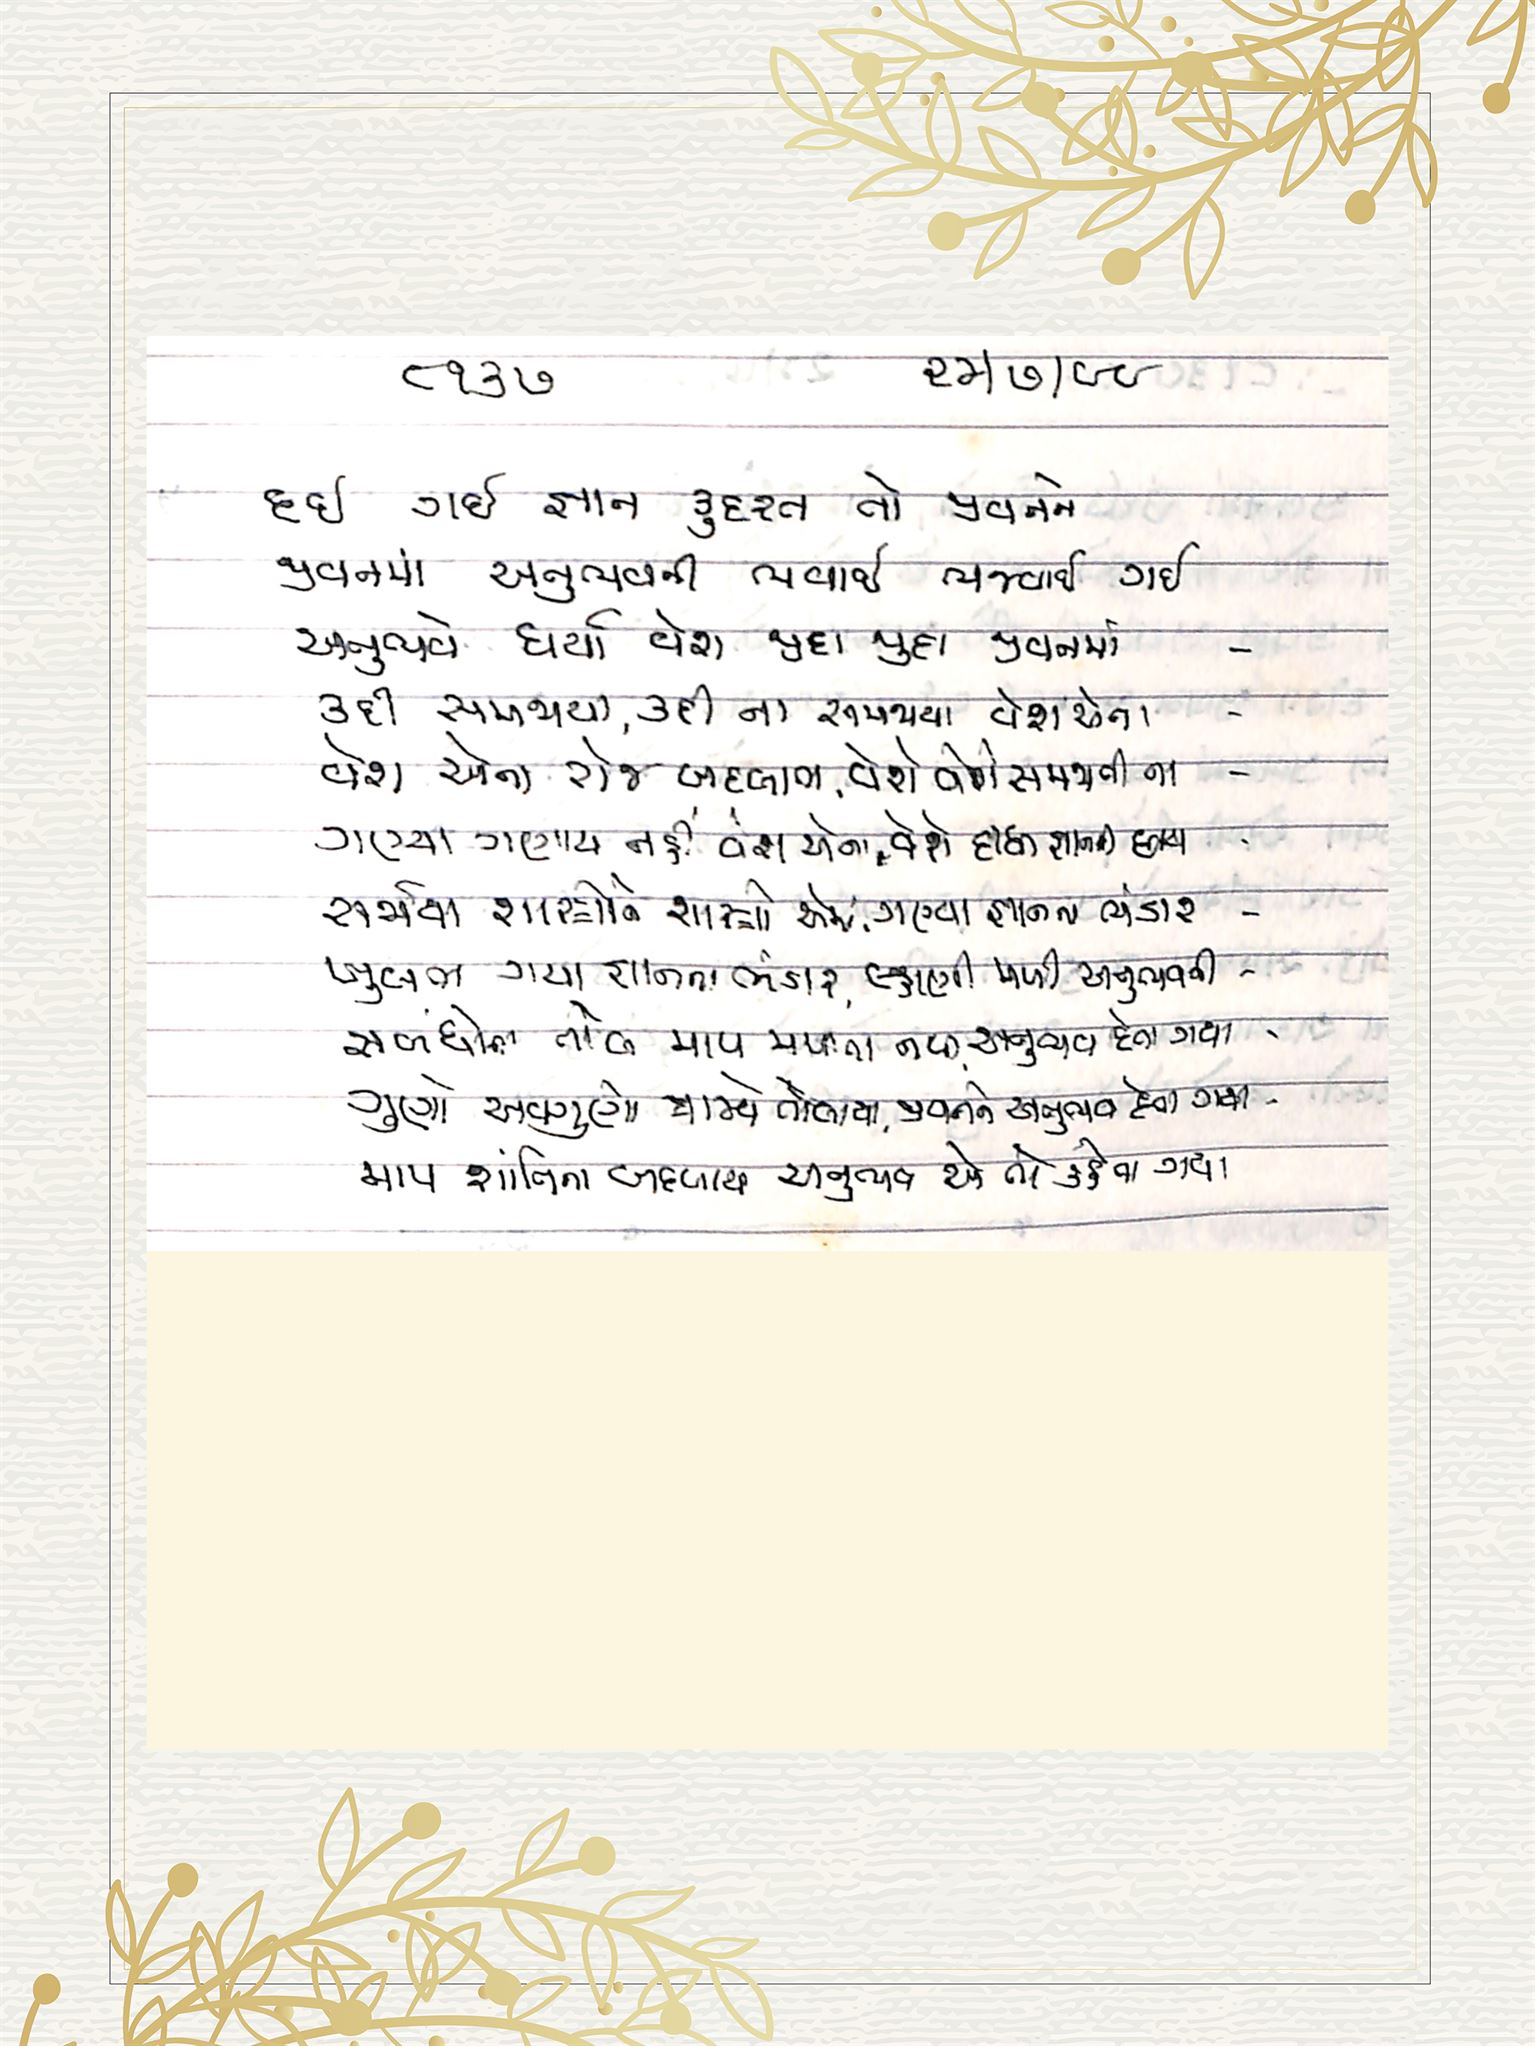 ૮૧૩૭ ૨૫/૭/૯૯
દઈ ગઈ જ્ઞાન કુદરત તો જીવનને
જીવનમાં અનુભવની ભવાઈ ભજવાઈ ગઈ
અનુભવે ધર્યા વેશ જુદા જુદા જીવનમાં -
કદી સમજાયા, કદી ના સમજાયા વેશ એના -
વેશ એના રોજ બદલાય, વેશે વેશે સમજાવી ના -
ગણ્યા ગણાય નહીં વેશ એના, વેશે જ્ઞાનની છાય
સર્જાયા શાસ્ત્રોને શાસ્ત્રો એમાં, ગણ્યા જ્ઞાનના ભંડાર -
ખુલતા ગયા જ્ઞાનના ભંડાર, લ્હાણી મળી અનુભવની -
સબંધોના તોલ માપ મળતા અનુભવ દેતા ગયા -
ગુણો અવગુણો સામે તોલાયા, જીવનને અનુભવ દેતા ગયા -
માપ શાંતિના બદલાયા અનુભવ એ તો કહેતા ગયા